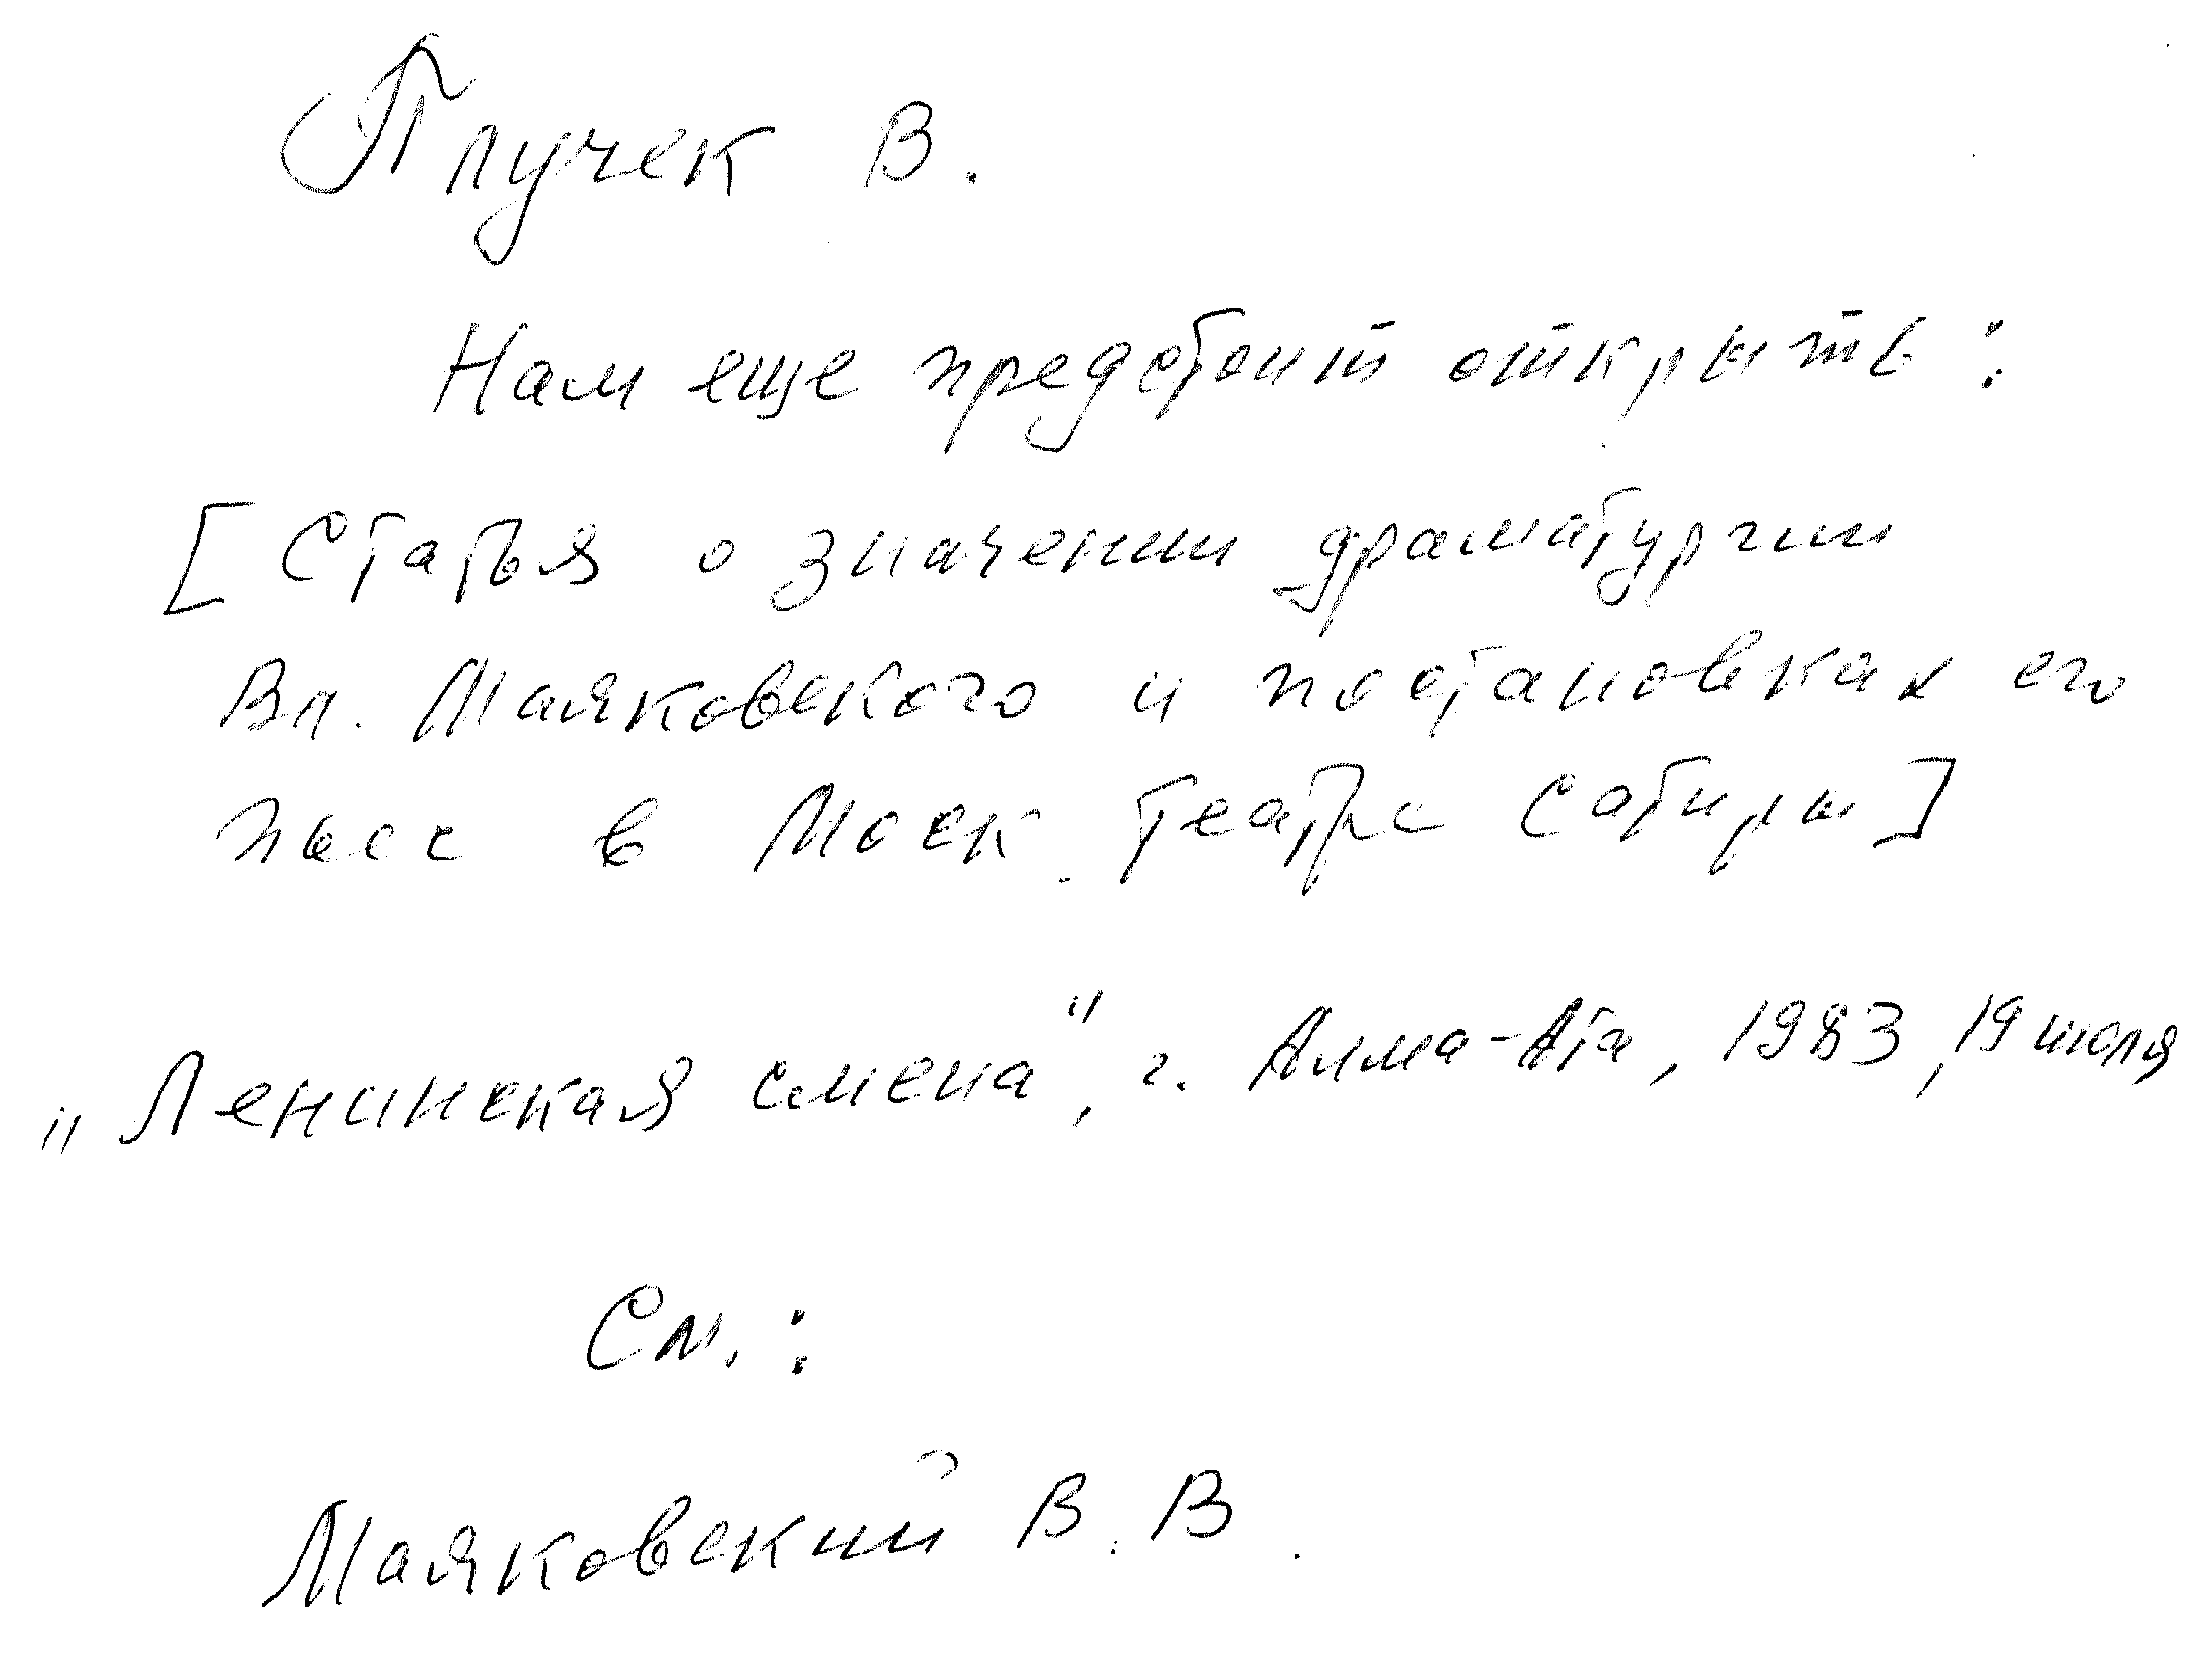 Плучек В.
Нам еще предстоит открыть:
[Статья о значении драматургии
Вл. Маяковского и постановках его
пьес в Моск. театре Сатиры]
„Ленинская смена", г. Алма-Ата, 1983, 19 июля
См.:
Маяковский В.В.